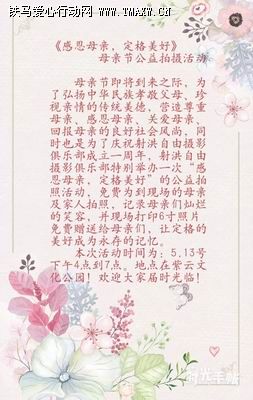 铁马爱心行动网 www.TMAXW.cn
《感恩母亲，定格美好》
母亲节公益拍摄活动
母亲节即将到来之际，为
了弘扬中华民族孝敬父母、珍
视亲情的传统美德，营造尊重
母亲、感恩母亲、关爱母亲、
回报母亲的良好社会风尚，同
时也是为了庆祝射洪自由摄影
俱乐部成立一周年，射洪自由
摄影俱乐部特别举办一次“感
恩母亲，定格美好”的公益拍
照活动，免费为到现场的母亲
及家人拍照，记录母亲们灿烂
的笑容，并现场打印6寸照片
免费赠送给母亲们，让定格的
美好成为永存的记忆。
本次活动时间为：5.13号
下午4点到7点。地点在紫云文
化公园！欢迎大家届时光临！
时光手帐